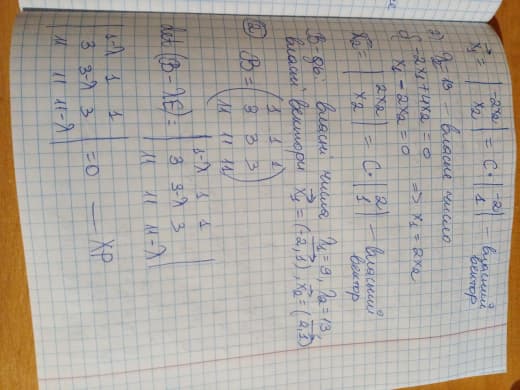 x₁ = |-2x₂ x₂| = C·|-2 1| – власний вектор
2) λ₂=13 – власне число
{-2x₁+4x₂=0
x₁-2x₂=0 => x₁=2x₂
x₂ = |2x₂ x₂| = C·|2 1| – власний вектор
В-дь: власні числа λ₁=9, λ₂=13,
власні вектори x₁=(-2,1), x₂=(2,1)
② B=(1 1 1
3 3 3
11 11 11)
det(B-λE)= |1-λ 1 1
3 3-λ 3
11 11 11-λ|
|1-λ 1 1
3 3-λ 3
11 11 11-λ| =0 — ХР